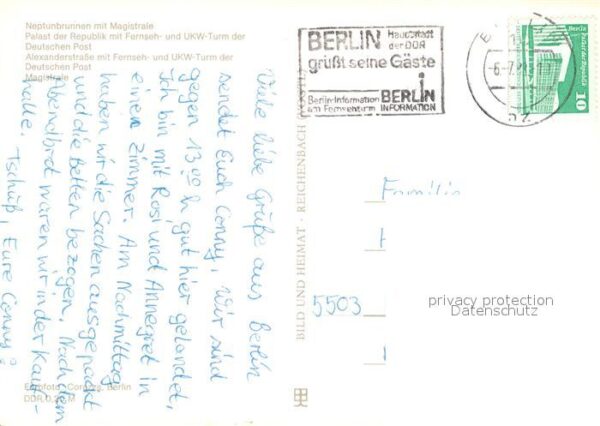 Neptunbrunnen mit Magistrale
Palast der Republik mit Fernseh- und UKW-Turm der
Deutschen Post
Alexanderstraße mit Fernseh- und UKW-Turm der
Deutschen Post
Magistrale
Viele liebe Grüße aus Berlin
sendet Euch Conny, Wir sind
gegen 13.00 h gut hier gelandet,
Ich bin mit Rosi und Annegret in
einem Zimmer. Am Nachmittag
haben wir die Sachen ausgepackt
und die Betten bezogen, Nach dem
Abendbrot waren wir in der Kauf-
halle. Tschüß, Eure Conny!
Berlin
DDR
BILD UND HEIMAT · REICHENBACH
BERLIN Hauptstadt
der DDR
grüßt seine Gäste
Berlin-Information
am Fernsehturm
BERLIN
INFORMATION
6.-7.
Berlin
Palast der Republik
10
Familie
5503
privacy protection
Datenschutz